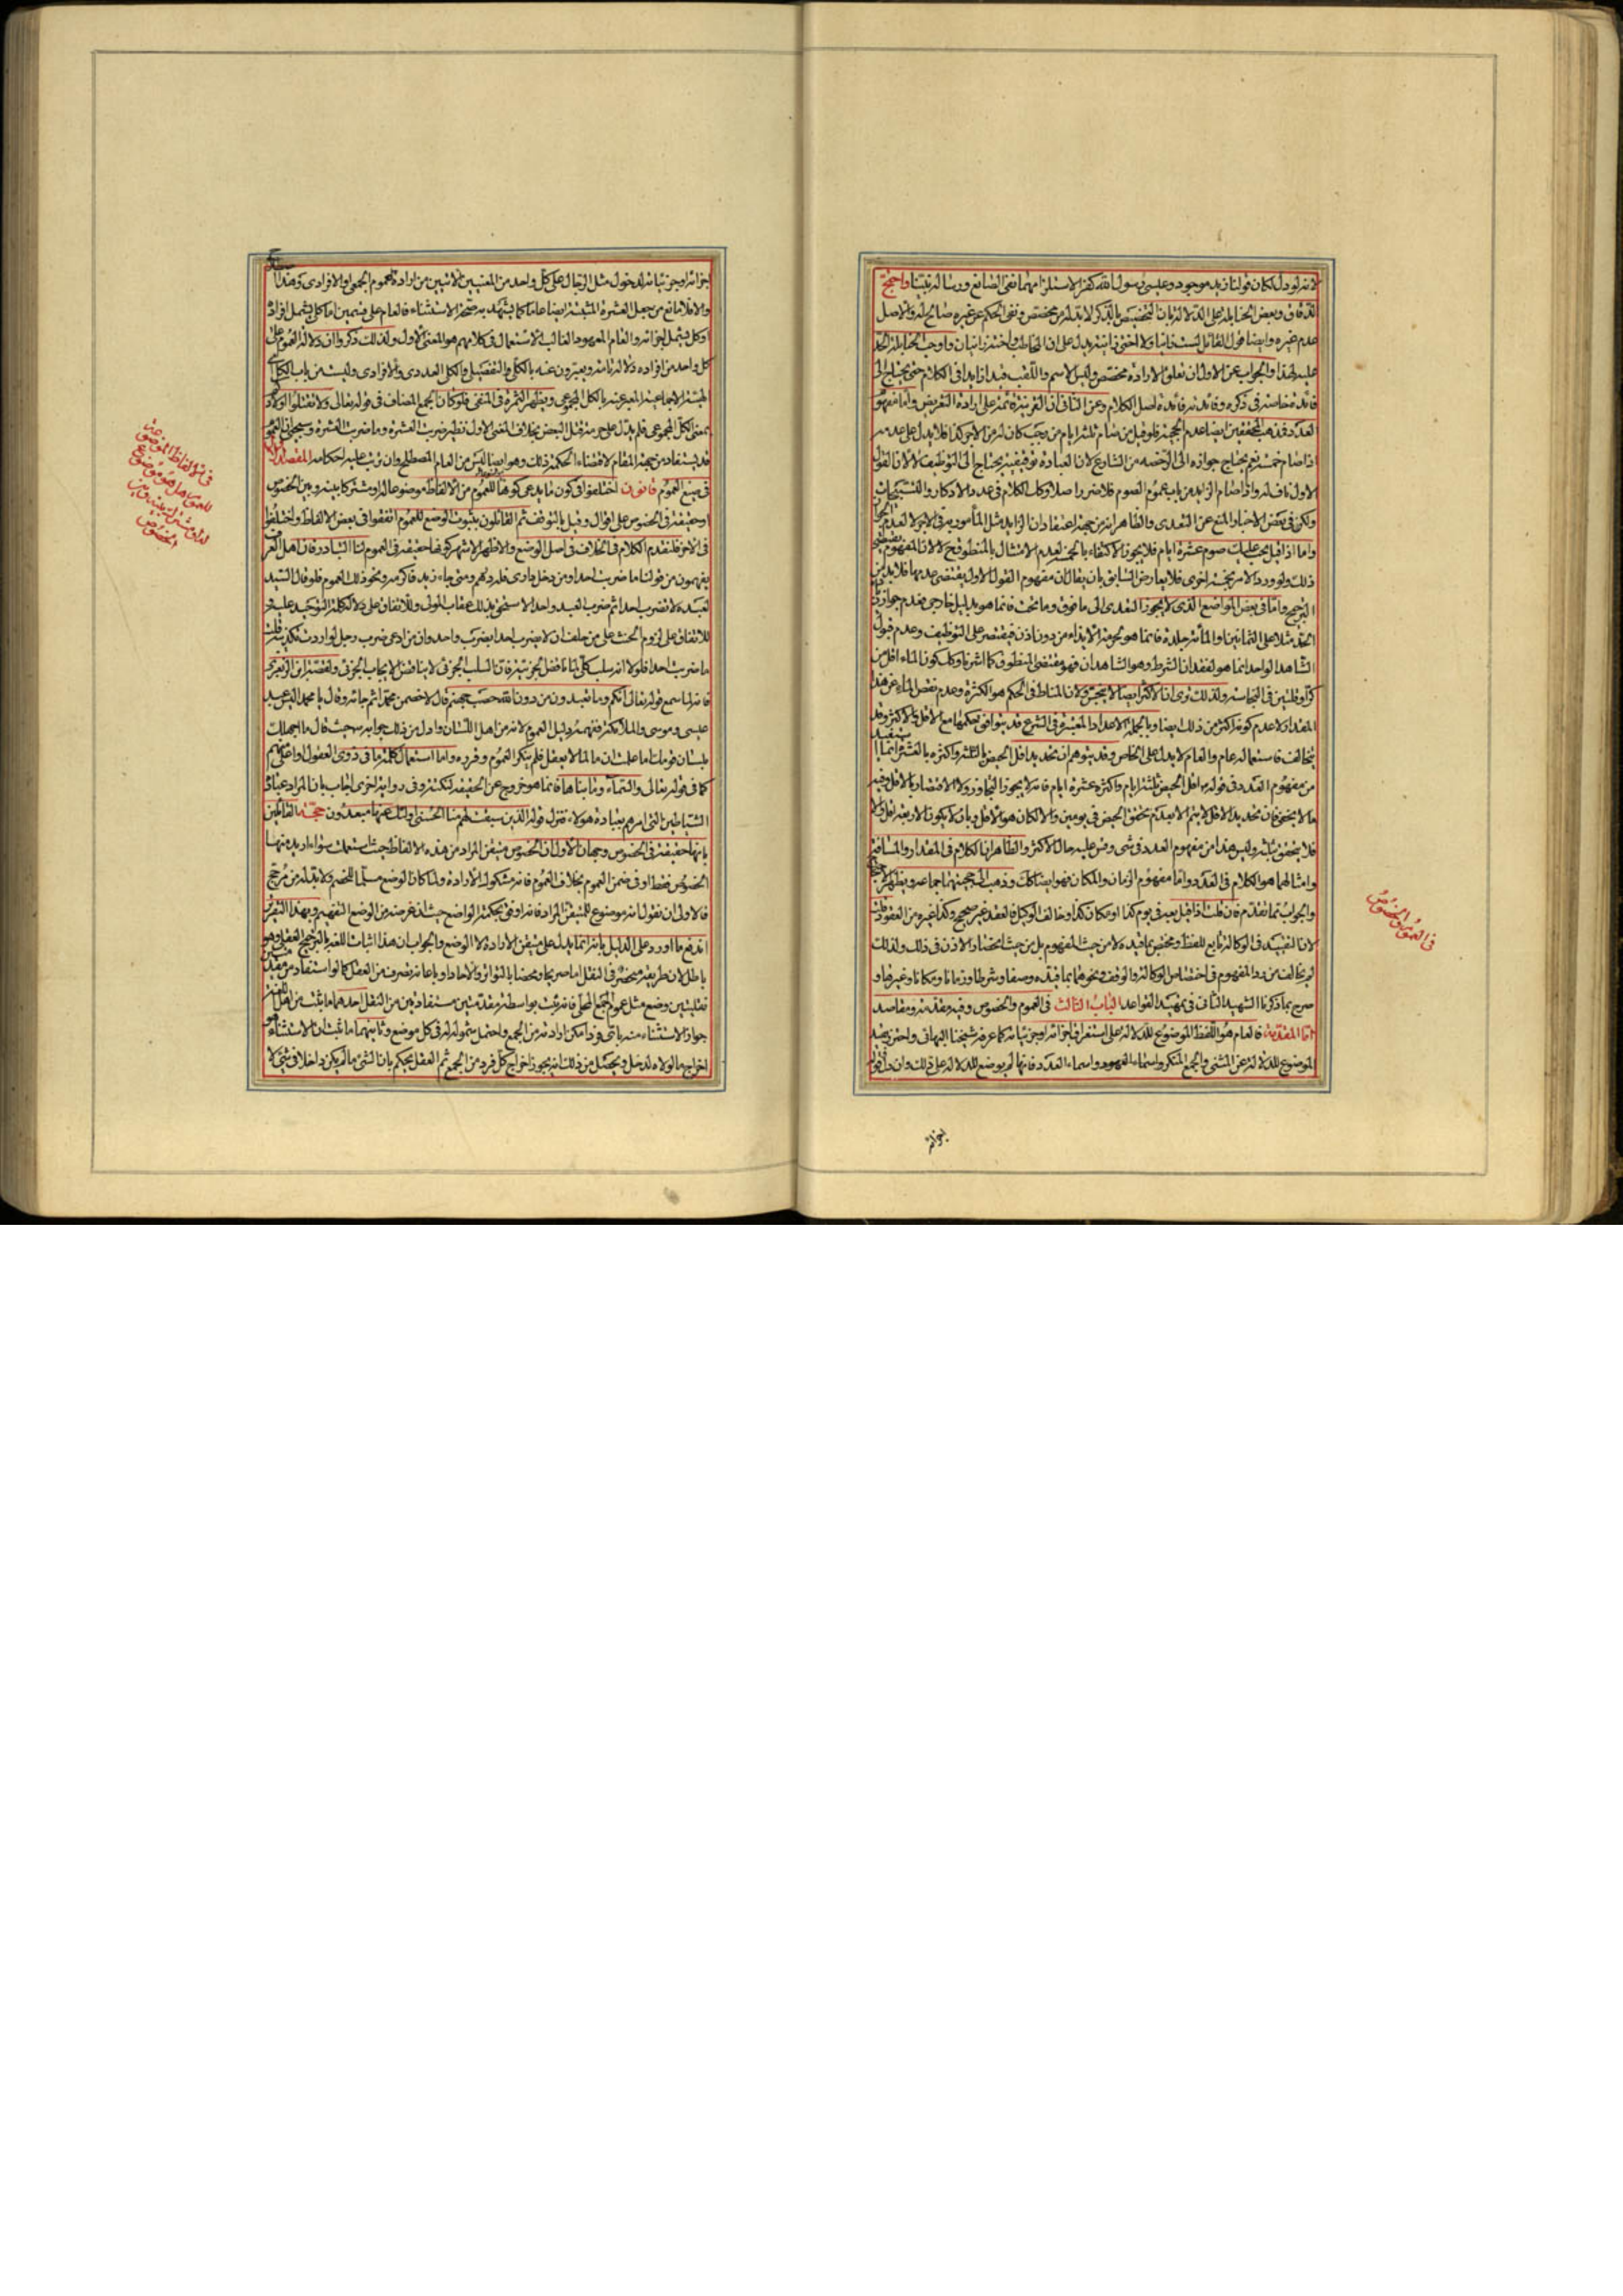 لانه لو دل لكان قولنا زيد موجود وعيسى رسول الله كفرا لاستلزامهما نفى الصانع ورسالة نبينا واحتج
الدقاق وبعض الحنابلة على الدلالة بان التخصيص بالذكر لا بد له من مخصص ونفى الحكم عن غيره صالح له والاصل
عدم غيره وايضا قول القائل لست زانيا ولا اختى زانية يدل على ان المخاطب واخته زانيان واوجب الحنابلة الحد
عليه لهذا والجواب عن الاول ان تعلق الارادة مخصص وليس الاسم واللقب قيدا زايدا فى الكلام حتى يحتاج الى
فائدة خاصة فى ذكره وفائدته فائدة اصل الكلام وعن الثانى ان القرينة قائمة على ارادة التعريض واما مفهوم
العدد فمذهب المحققين ايضا عدم الحجية فلو قيل من صام ثلثة ايام من رجب كان له من الاجر كذا فلا يدل على عدمه
اذا صام خمسة نعم يحتاج جوازه الى الرخصة من الشارع لان العبادة توقيفية يحتاج الى التوظيف لا لان القول
الاول ناف له واذا صام الزايد من باب عموم الصوم فلا ضرر اصلا وكك الكلام فى عدد الاذكار والتسبيحات
ولكن فى بعض الاخبار المنع عن التعدى والظاهر انه من جهة اعتقاد ان الزايد مثل المأمور به فى الاجر لا لعدم الجواز
واما اذا قيل يجب عليك صوم عشرة ايام فلا يجوز الاكتفاء بالخمسة لعدم الامتثال بالمنطوق ح لا لان المفهوم يقتضى
ذلك ولو ورد الامر بخمسة اخرى فلا يعارض السابق بان يقال ان مفهوم القول الاول يقتضى عدمها فلا بد من
الترجيح واما فى بعض المواضع الذى لا يجوز التعدى الى ما فوق وما تحت فانما هو بدليل خارجى فعدم جواز
الحد مثلا على الثمانين او المأة جلدة فانما هو لحرمة الايذاء من دون اذن فيقتصر على التوظيف وعدم قبول
الشاهد الواحد انما هو لفقدان الشرط وهو الشاهدان فهو مقتضى المنطوق كما اشرنا وكك كون الماء اقل من
كر او قلتين فى النجاسة ولذلك ترى ان الاكثر ايضا لا ينجس ولان المناط فى الحكم هو الكثرة وعدم نقص الماء عن هذا
المقدار لا عدم كونه اكثر من ذلك ايضا وبالجملة الاعداد المعتبرة فى الشرع قد يتوافق حكمها مع الاقل والاكثر وقد
يتخالف فاستعماله عام والعام لا يدل على الخاص وقد يتوهم ان تحديد اقل الحيض بالثلثة واكثره بالعشرة انما يستفيد
من مفهوم العدد فى قوله اقل الحيض ثلثة ايام واكثره عشرة ايام فانه لا يجوز التجاوز ولا الاقتصار بالاقل وفيه
ما لا يخفى فان تحديد الاقل لا يتم الا بعدم تحقق الحيض فى يومين والا لكان هو الاقل وبان لا يكون الاربعة اقل والا
فلا يتحقق بثلثة وليس هذا من مفهوم العدد فى شى وقس عليه حال الاكثر والظاهر ان الكلام فى المقدار والمسافة
وامثالهما هو الكلام فى العدد واما مفهوم الزمان والمكان فهو ايضا كك وذهب الى حجيتهما جماعة ويظهر الاحتجاج
والجواب مما تقدم فان قلت اذا قيل بعه فى يوم كذا او مكان كذا وخالف الوكيل فالعقد غير صحيح وكذا غيره من العقود قلت
لان التقييد فى الوكالة تابع للفظ ومختص بما قيد به لا من حيث المفهوم بل من حيث انحصار الاذن فى ذلك ولذلك
لم يخالف من رد المفهوم فى اختصاص الوكالة والوقف ونحوهما بما قيد به وصفا وشرطا وزمانا ومكانا وغيرها و
صرح بما ذكرنا الشهيد الثانى فى تمهيد القواعد الباب الثالث فى العموم والخصوص وفيه مقدمة ومقاصد
اما المقدمة فالعام هو اللفظ الموضوع للدلالة على استغراق اجزائه او جزئياته كما عرفه شيخنا البهائى واحترز بقيد
الموضوع للدلالة عن المثنى والجمع المنكر واسماء العهود واسماء العدد فانها لم يوضع للدلالة على ذلك وان دل
فى العموم والخصوص
اجزائه
اجزائه او جزئياته لدخول مثل الرجال على كل واحد من المعنيين الاتيين من ارادة العموم الجمعى والافرادى وهذا
والا فلا مانع من جعل العشرة المثبتة ايضا عاما كما يشهد به صحة الاستثناء فالعام على قسمين اما كلى يشمل افراده
او كل يشمل اجزائه والعام المعهود الغالب الاستعمال فى كلامهم هو المعنى الاول ولذلك ذكروا ان دلالة العموم على
كل واحد من افراده دلالة تامة ويعبرون عنه بالكلى التفصيلى والكل العددى والافرادى وليست من باب الكل اى
الهيئة الاجتماعية المعبر عنه بالكل المجموعى ويظهر الثمرة فى المنفى فلو كان الجمع المضاف فى قوله تعالى ولا تقتلوا اولادكم
بمعنى الكل المجموعى فلم يدل على حرمة قتل البعض بخلاف المعنى الاول نظير ضربت العشرة وما ضربت العشرة وسيجئ ان العموم
قد يستفاد من جهة المقام لاقتضاء الحكمة ذلك وهو ايضا ليس من العام المصطلح وان ترتب عليه احكامه المقصد الاول
فى صيغ العموم قانون اختلفوا فى كون ما يدعى كونها للعموم من الالفاظ موضوعا له او مشتركا بينه وبين الخصوص
او حقيقة فى الخصوص على اقوال وقيل بالتوقف ثم القائلون بثبوت الوضع للعموم اتفقوا فى بعض الالفاظ واختلفوا
فى الاخر فلنقدم الكلام فى الخلاف فى اصل الوضع والاظهر الاشهر كونها حقيقة فى العموم لنا التبادر فان اهل العرف
يفهمون من قولنا ما ضربت احدا ومن دخل دارى فله درهم ومتى جاءك زيد فاكرمه ونحو ذلك العموم فلو قال السيد
لعبده لا تضرب احدا ثم ضرب العبد واحدا لاستحق بذلك عقاب المولى وللاتفاق على دلالة كلمة التوحيد عليه و
للاتفاق على لزوم الحنث على من حلف ان لا يضرب احدا بضرب واحد وان من ادعى ضرب رجل لو اردت تكذيبه قلت
ما ضربت احدا فلولا انه سلب كلى لما ناقض الجزئية فان السلب الجزئى لا يناقض الايجاب الجزئى ولقصة ابن الزبعرى
فانه لما سمع قوله تعالى انكم وما تعبدون من دون الله حصب جهنم قال لاخصمن محمدا ثم جائه وقال يا محمد اليس عبد
عيسى وموسى والملائكة ففهمه دليل العموم لانه من اهل اللسان وادل من ذلك جوابه حيث قال ما اجهلك
بلسان قومك اما علمت ان ما لما لا يعقل فلم ينكر العموم وقرره واما استعمال كلمة ما فى ذوى العقول او اعم
كما فى قوله تعالى والسماء وما بناها فانما هو خروج عن الحقيقة لنكتة وفى رواية اخرى اجاب بان المراد عبادة
الشياطين التى امرهم بعبادة هؤلاء فنزل قوله الذين سبقت لهم منا الحسنى اولئك عنها مبعدون حجة القائلين
بانها حقيقة فى الخصوص وجهان الاول ان الخصوص متيقن المراد من هذه الالفاظ حيث استعملت سواء اريد منها
الخصوص فقط او فى ضمن العموم بخلاف العموم فانه مشكوك الارادة ولما كان الوضع مسلما للخصم ولا بد له من مرجح
فالاولى ان نقول انه موضوع للمتيقن المراد فانه اوفق بحكمة الواضع حيث ان غرضه من الوضع التفهيم وبهذا التقرير
اندفع ما اورد على الدليل بانه انما يدل على متيقن الارادة لا الوضع والجواب ان هذا اثبات اللغة بالترجيح العقلى وهو
باطل لان طريقه منحصر فى النقل اما صريحا ومحضا بالتواتر والآحاد او باعانة تصرف من العقل كما لو استفاد من مقدمتين
نقليتين وضع مثل عموم الجمع المحلى فانه يثبت بواسطة مقدمتين مستفادتين من النقل احدهما ما يثبت من اهل اللغة
جواز الاستثناء منه باى فرد امكن ارادته من الجمع واحتمل شموله له فى كل موضع وثانيهما ما ثبت ان الاستثناء هو
اخراج ما لولاه لدخل ويحصل من ذلك انه يجوز اخراج كل فرد من الجمع ثم العقل يحكم بان الشئ ما لم يكن داخلا فى شئ لا
فى ان الالفاظ الموضوعة
للعموم هل هى موضوع
له او مشترك بينه وبين
الخصوص